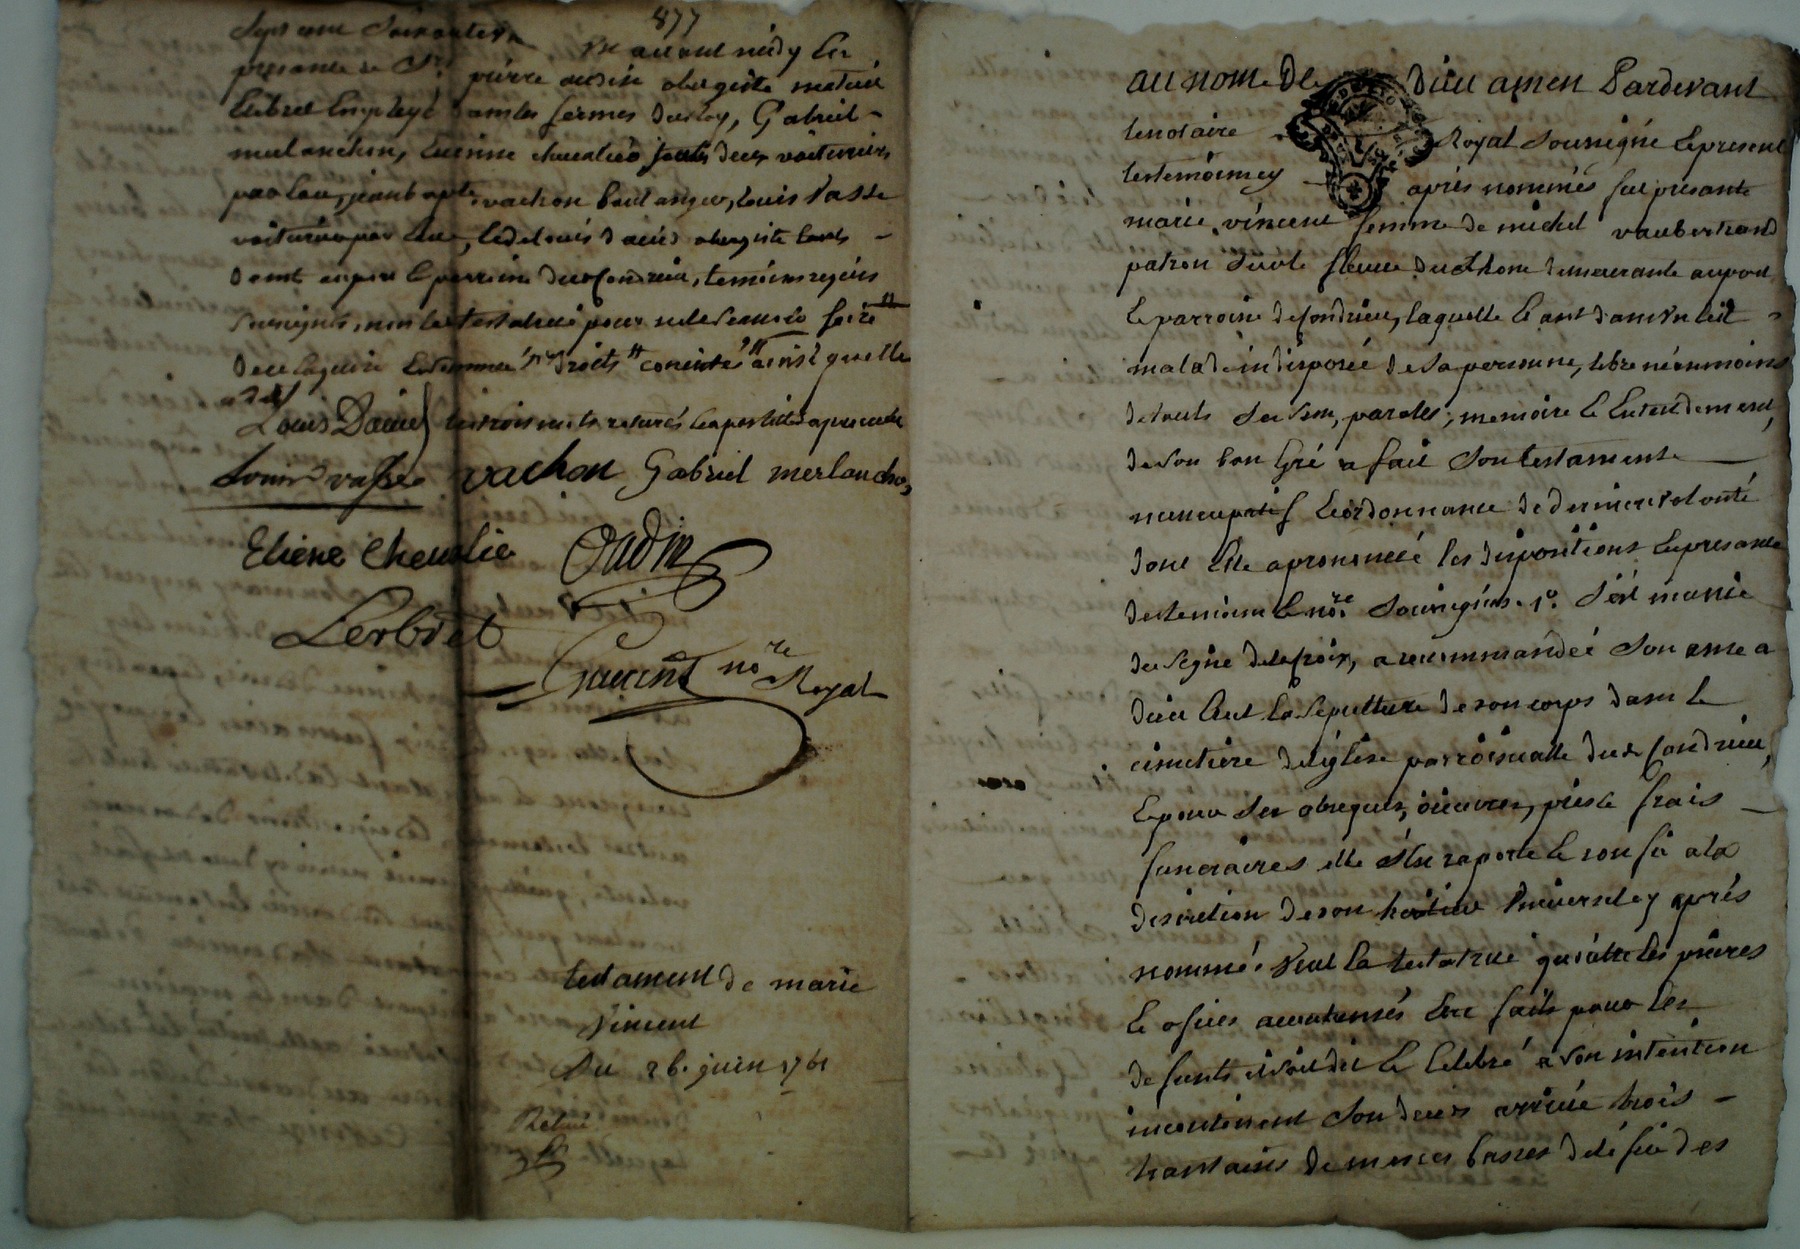 877
sept cent soixante un avant midy En
presance de Sr pierre audin aubergiste mathieu
Lerbret Employé dans les fermes du Roy, Gabriel
merlanchon, Etienne chevalier touts deux voituriers
par Eau, jean bapte vachon boulanger, Louis Vasse
voiturier par Eau, & de Louis Daviés abergiste touts
demt au port & parroisse dud Condrieu, temoins requis
soussignés, non la testatrice pour ne le scavoir faire
de ce Enquise & sommée droits ainsi quelle
a dit
Louis Daviel trois mots raturés
Louis vasse vachon Gabriel merlanchon
Etiene Chevalie Oudin
Lerbret
nore Royal
testament de marie
Vincent
Du 26. juin 1761
au nom De Dieu amen Pardevant
le notaire Royal soussigné & presents
les temoins cy après nommés fut présante
marie vincent femme de michel vaubertrand
patron sur le fleuve du Rhone demeurante au port
& parroisse de Condrieu, laquelle Etant dans un lit
malade indisposée de sa personne, libre néanmoins
de touts ses sens, paroles, memoire & Entendement,
de son bon Gré a fait son testament
nuncupatif & ordonnance de derniere volonté
dont Elle a prononcé les dispositions En presance
des temoins & nore soussignés. 1o. s'est munie
du signe de la Croix, a recommandée son ame a
dieu Elut la sepulture de son corps dans le
cimetiere de l'églize parroissialle dud Condrieu,
& pour ses obseques, œuvres, pies & frais
funeraires elle s'en raporte & confie a la
discretion de son heritier Universel cy après
nommé. Veut la testatrice qu'outre les prières
& ofices acoutumés Etre faits pour les
defunts il soit dit & Celebré a son intention
incontinent son deces arrivé trois
trantaines de messes basses de